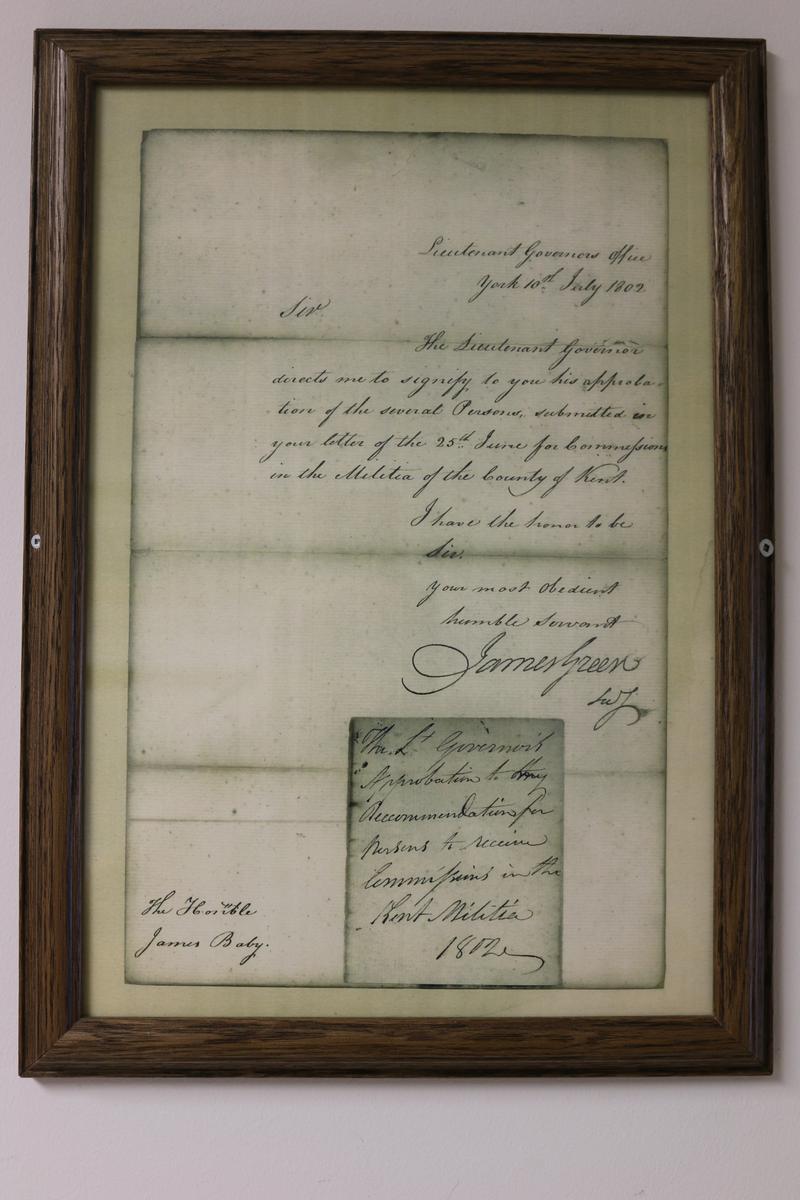 Lieutenant Governors Office
York 10th July 1802
Sir
The Lieutenant Governor
directs me to signify to you his approba-
tion of the several Persons, submitted in
your letter of the 25th June for Commissions
in the Militia of the County of Kent.
I have the honor to be
Sir.
your most obedient
humble servant
James Green
The Lt Governor's
Approbation to my
Recommendation for
persons to receive
Commissions in the
Kent Militia
1802
The Honble
James Baby.